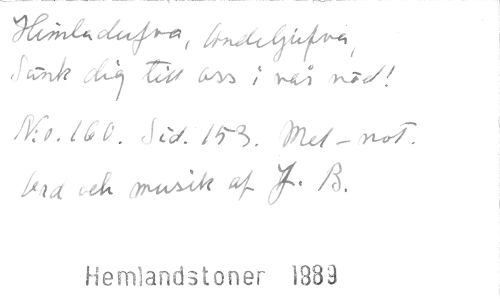 Himladufva, Andeljufva,
Sänk dig till oss i vår nöd!
No. 160. Sid. 153. Mel-not.
Ord och musik af J. B.
Hemlandstoner 1889